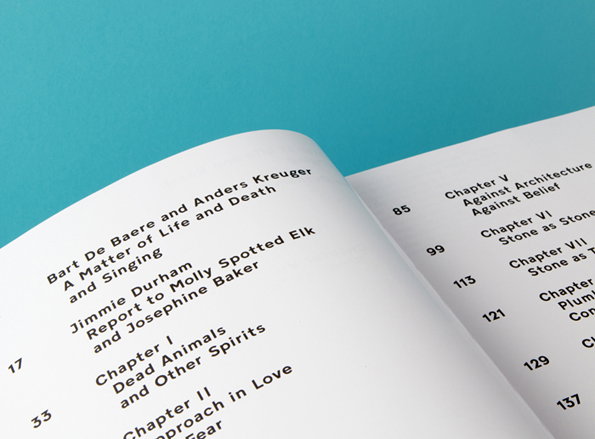 Bart De Baere and Anders Kreuger
A Matter of Life and Death
and Singing
17
Jimmie Durham
Report to Molly Spotted Elk
and Josephine Baker
33
Chapter I
Dead Animals
and Other Spirits
Chapter II
in Love
Fear
85
Chapter V
Against Architecture
Against Belief
99
Chapter VI
Stone as Stone
113
Chapter VII
Stone as
121
Chapter
129
137